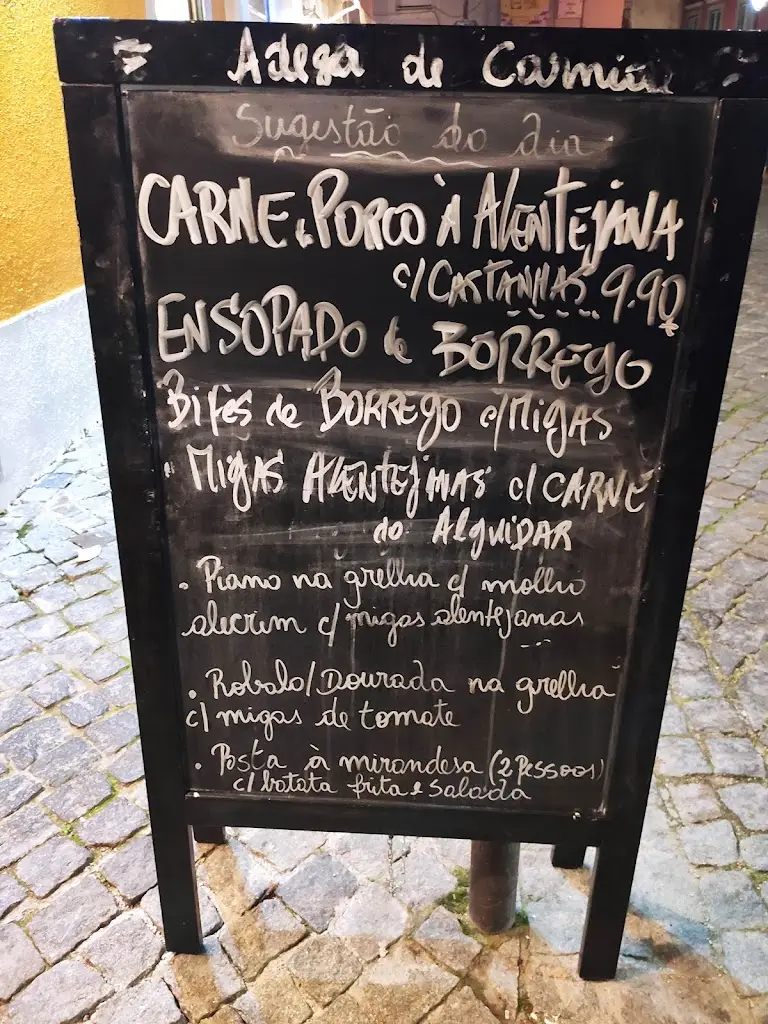 Adega de
Sugestão do dia
CARNE de PORCO À ALENTEJANA
c/CASTANHAS 9.90
ENSOPADO de BORREGO
Bifes de BORREGO c/MIGAS
. MIGAS ALENTEJANAS c/CARNE
do AlguiDAR
. Piano na grelha c/ molho
alecrim c/ migas alentejanas
. Robalo/Dourada na grelha
c/ migas de tomate
. Posta à mirandesa (2 Pessoas)
c/batata frita e Salada